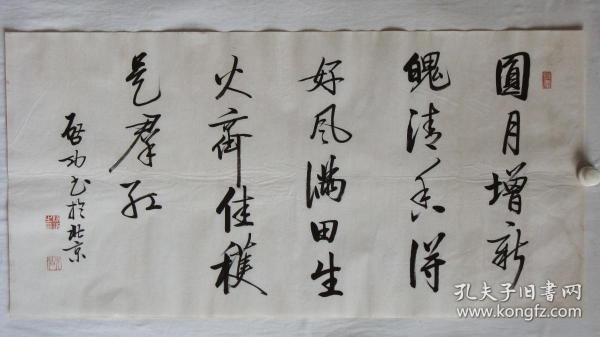 圓月增新
魄清香得
好風滿田生
火齊佳穫
是羣紅
啓功書於北京
孔夫子旧书网
www.kongfz.com